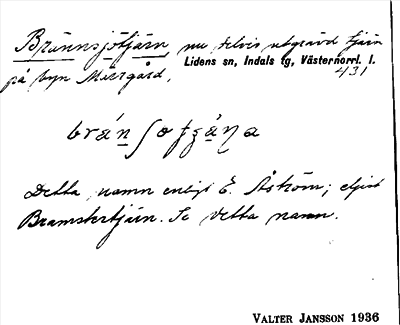 Brännsjötjärn nu delvis utgrävd tjärn
Lidens sn, Indals tg, Västernorrl. l.
på byn Mäsgård,
431
Detta namn enligt E. Åström; eljest
Bramstertjärn. Se detta namn.
VALTER JANSSON 1936